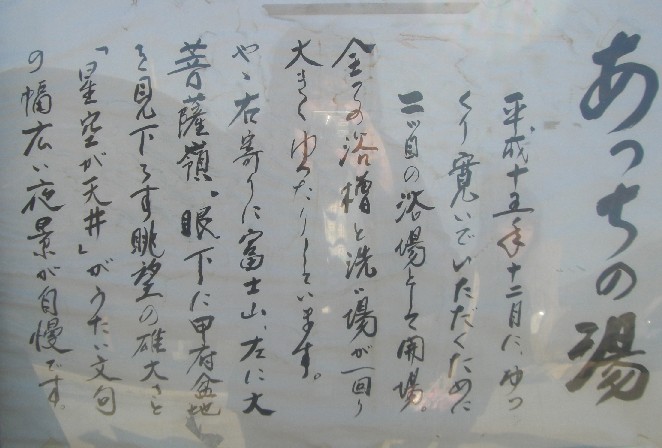 あっちの湯
平成十五年十二月に、ゆっ
くり寛いでいただくために
二ッ目の浴場として開場。
全ての浴槽と洗い場が一回り
大きくゆったりしています。
やゝ右寄りに富士山、左に大
菩薩嶺。眼下に甲府盆地
を見下ろす眺望の雄大さと
「星空が天井」がうたい文句
の幅広い夜景が自慢です。